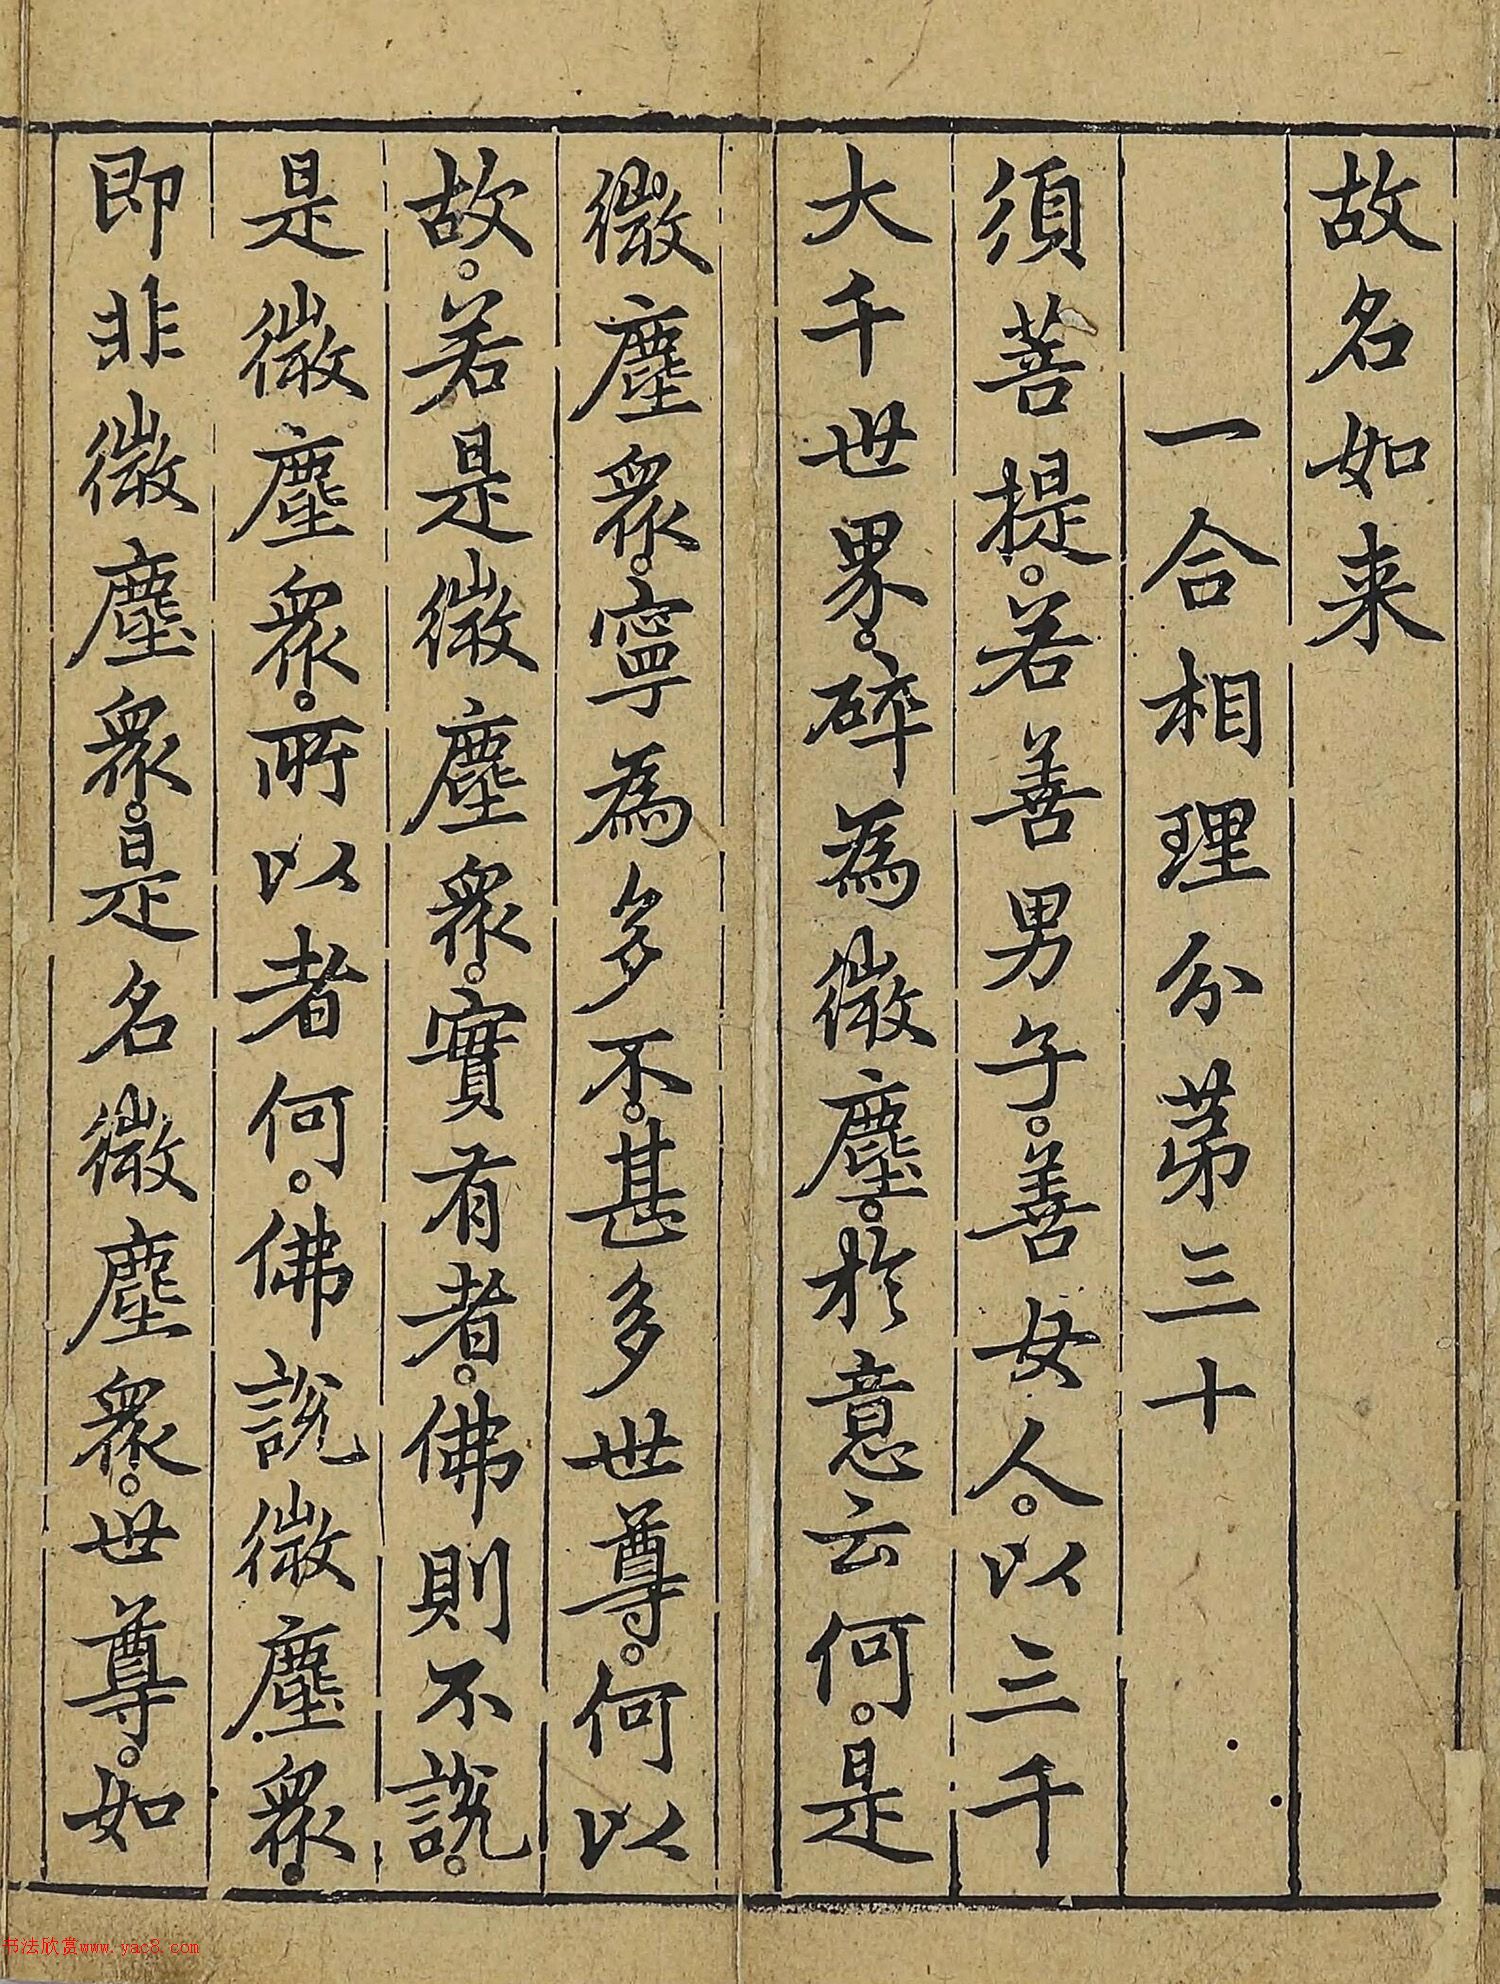 故名如来
一合相理分第三十
須菩提。若善男子。善女人。以三千
大千世界。碎為微塵。於意云何。是
微塵眾。寧為多不。甚多世尊。何以
故。若是微塵眾。實有者。佛則不說。
是微塵眾。所以者何。佛說微塵眾。
即非微塵眾。是名微塵眾。世尊。如
书法欣赏www.yac8.com